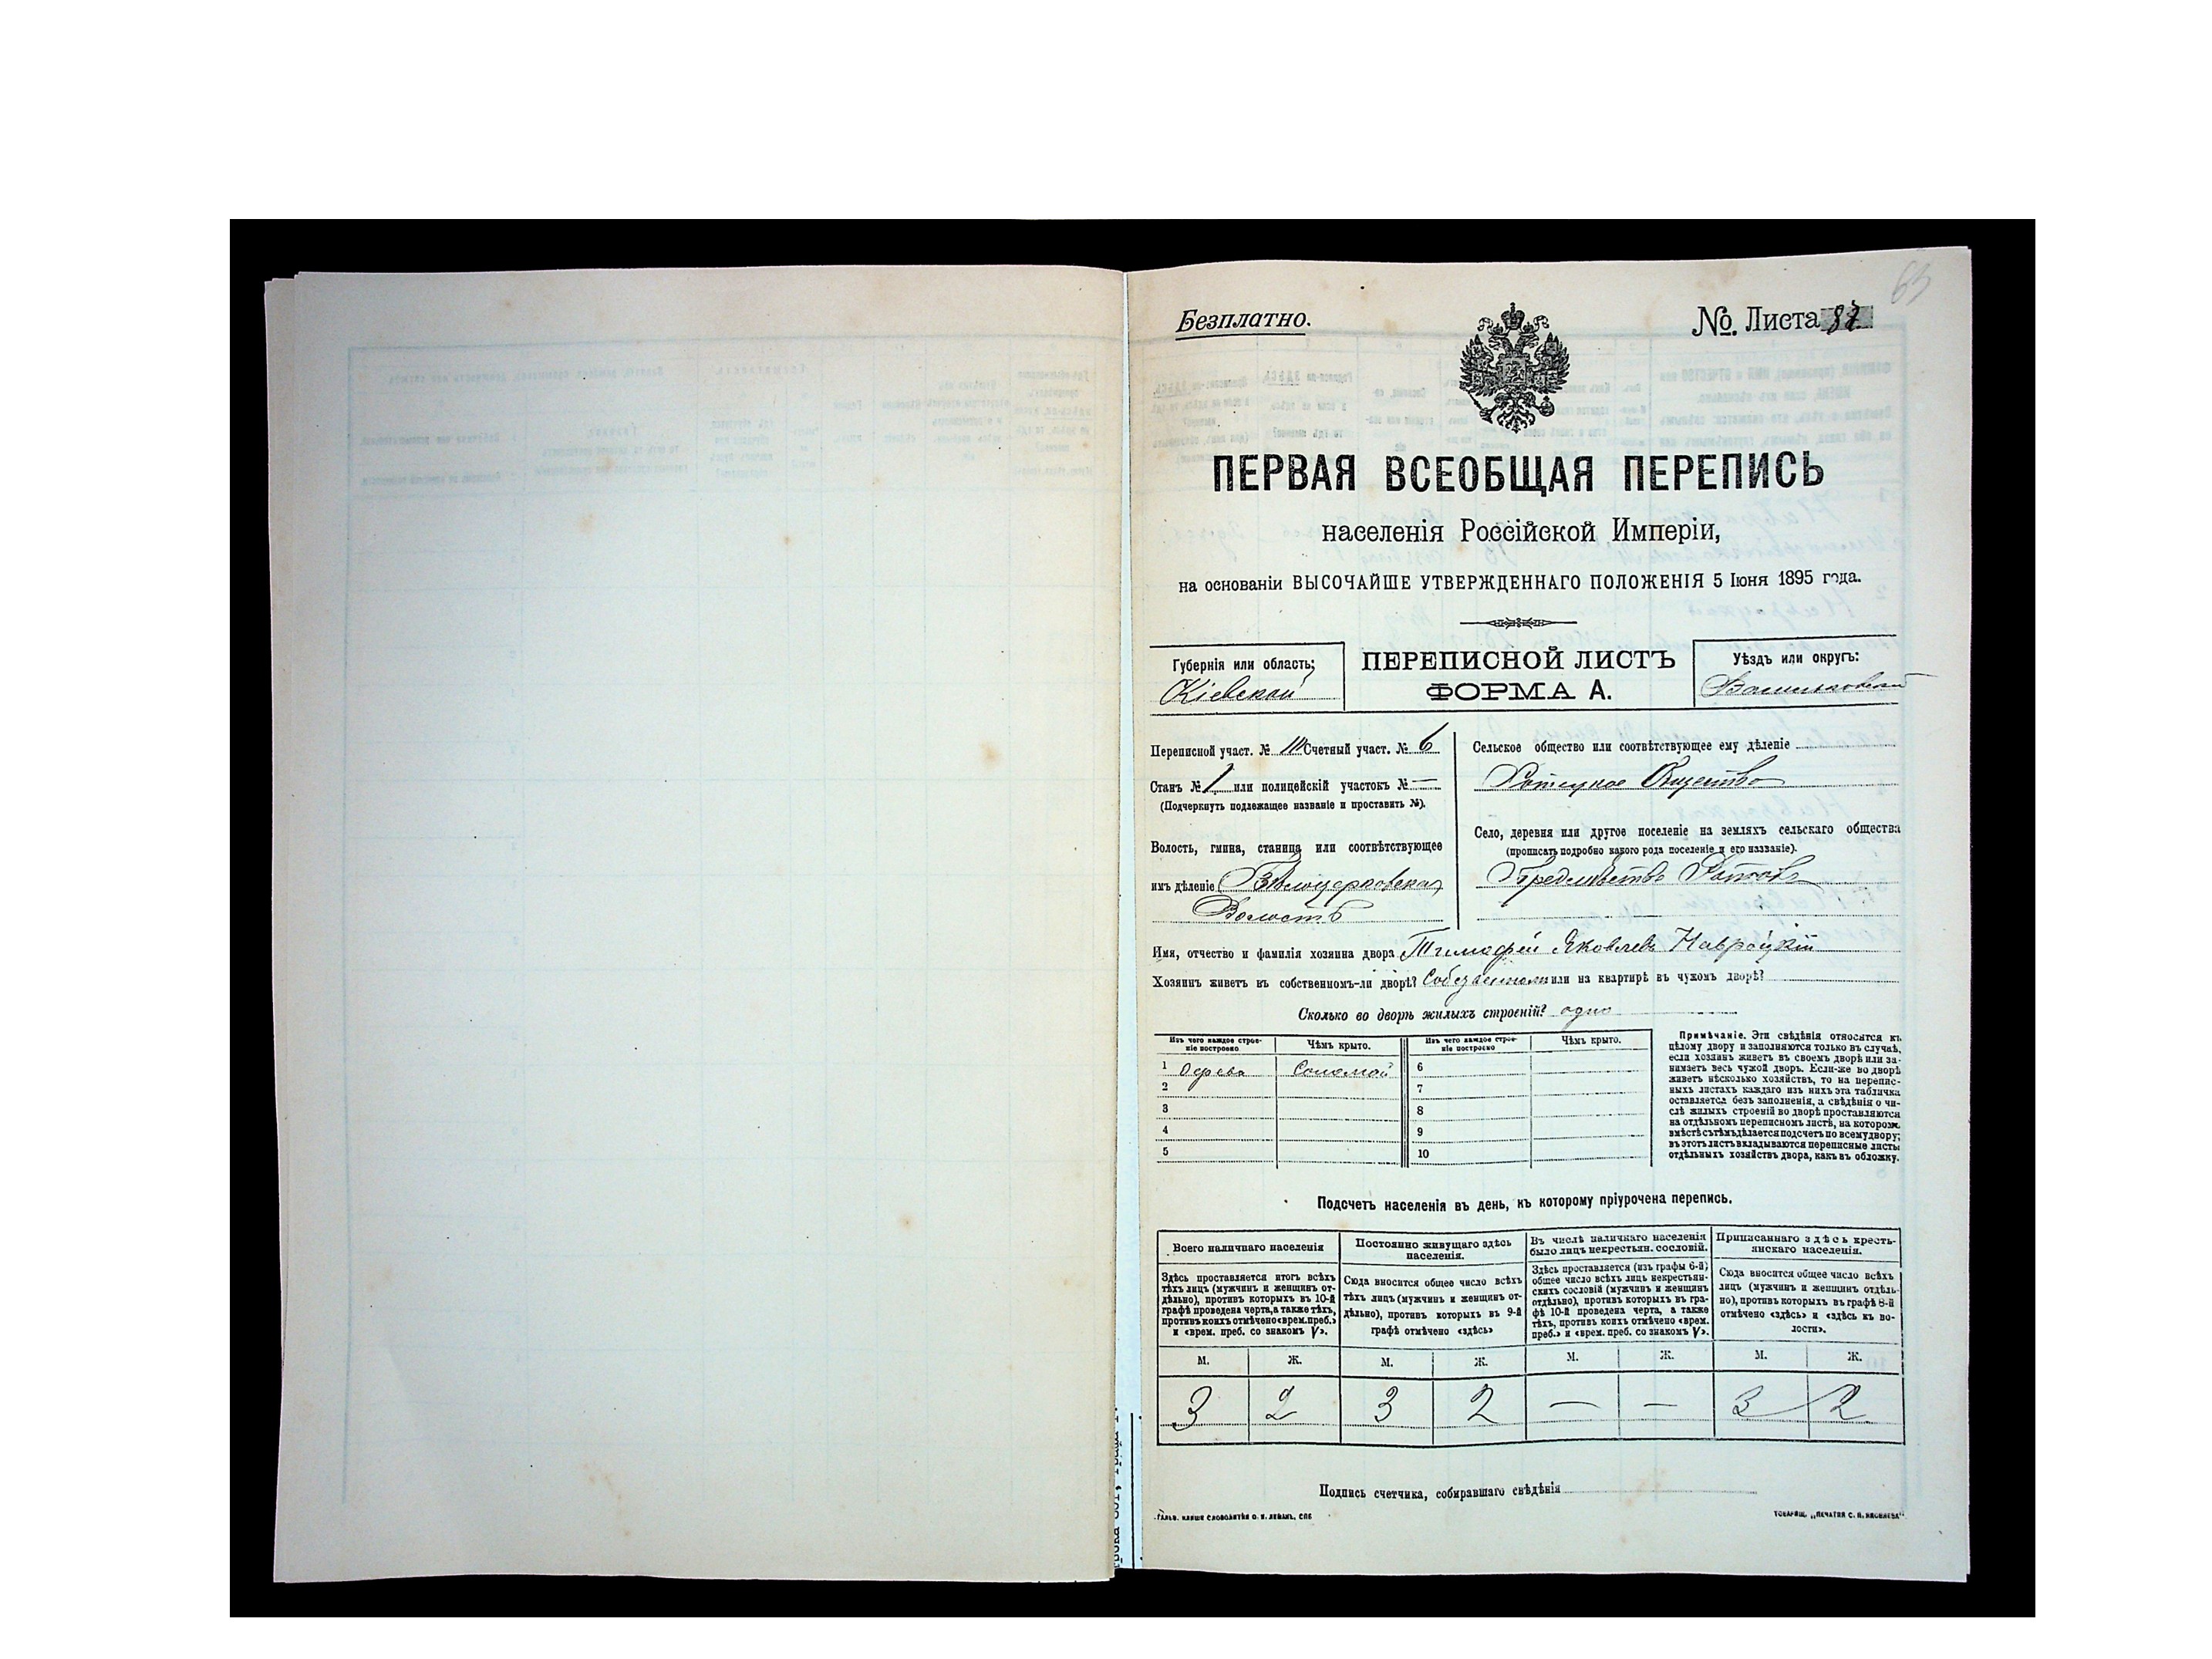 63
Безплатно.
№. Листа 87
ПЕРВАЯ ВСЕОБЩАЯ ПЕРЕПИСЬ
населенія Россійской Имперіи,
на основаніи ВЫСОЧАЙШЕ УТВЕРЖДЕННАГО ПОЛОЖЕНІЯ 5 Іюня 1895 года.
Губернія или область:
Кіевская
ПЕРЕПИСНОЙ ЛИСТЪ
ФОРМА А.
Уѣздъ или округъ:
Васильковскій
Переписной участ. № Счетный участ. № 6
Станъ № 1 или полицейскій участокъ № —
(Подчеркнуть подлежащее названіе и проставить №).
Волость, гмина, станица или соотвѣтствующее
имъ дѣленіе Бѣлоцерковская
Волость
Сельское общество или соотвѣтствующее ему дѣленіе
Общество
Село, деревня или другое поселеніе на земляхъ сельскаго общества
(прописать подробно какого рода поселеніе и его названіе).
Предмѣстье
Имя, отчество и фамилія хозяина двора Тимофей Яковлевъ Навроцкій
Хозяинъ живетъ въ собственномъ-ли дворѣ? или на квартирѣ въ чужомъ дворѣ?
Сколько во дворѣ жилыхъ строеній? одно
Изъ чего каждое строе-
ніе построено
Чѣмъ крыто.
Изъ чего каждое строе-
ніе построено
Чѣмъ крыто.
1 дерева Соломой 6
2 7
3 8
4 9
5 10
Примѣчаніе. Эти свѣдѣнія относятся къ
цѣлому двору и заполняются только въ случаѣ,
если хозяинъ живетъ въ своемъ дворѣ или за-
нимаетъ весь чужой дворъ. Если-же во дворѣ
живетъ нѣсколько хозяйствъ, то на перепис-
ныхъ листахъ каждаго изъ нихъ эта табличка
оставляется безъ заполненія, а свѣдѣнія о чи-
слѣ жилыхъ строеній во дворѣ проставляются
на отдѣльномъ переписномъ листѣ, на которомъ
вмѣстѣ съ тѣмъ дѣлается подсчетъ по всему двору;
въ этотъ листъ вкладываются переписные листы
отдѣльныхъ хозяйствъ двора, какъ въ обложку.
Подсчетъ населенія въ день, къ которому пріурочена перепись.
Всего наличнаго населенія
Здѣсь проставляется итогъ всѣхъ
тѣхъ лицъ (мужчинъ и женщинъ от-
дѣльно), противъ которыхъ въ 10-й
графѣ проведена черта, а также тѣхъ,
противъ коихъ отмѣчено «врем. преб.»
и «врем. преб. со знакомъ V».
Постоянно живущаго здѣсь
населенія.
Сюда вносится общее число всѣхъ
тѣхъ лицъ (мужчинъ и женщинъ от-
дѣльно), противъ которыхъ въ 9-й
графѣ отмѣчено «здѣсь»
Въ числѣ наличнаго населенія
было лицъ некрестьян. сословій.
Здѣсь проставляется (изъ графы 6-й)
общее число всѣхъ лицъ некрестьян-
скихъ сословій (мужчинъ и женщинъ
отдѣльно), противъ которыхъ въ гра-
фѣ 10-й проведена черта, а также
тѣхъ, противъ коихъ отмѣчено «врем.
преб.» и «врем. преб. со знакомъ V».
Приписаннаго здѣсь кресть-
янскаго населенія.
Сюда вносится общее число всѣхъ
лицъ (мужчинъ и женщинъ отдѣль-
но), противъ которыхъ въ графѣ 8-й
отмѣчено «здѣсь» и «здѣсь къ во-
лости».
М. Ж. М. Ж. М. Ж. М. Ж.
3 2 3 2 — — 3 2
Подпись счетчика, собиравшаго свѣдѣнія
ГАЛЬВ. КЛИШЕ СЛОВОЛИТНИ О. И. ЛЕМАНЪ, СПБ
ТОВАРИЩ. „ПЕЧАТНЯ С. П. ЯКОВЛЕВА“.